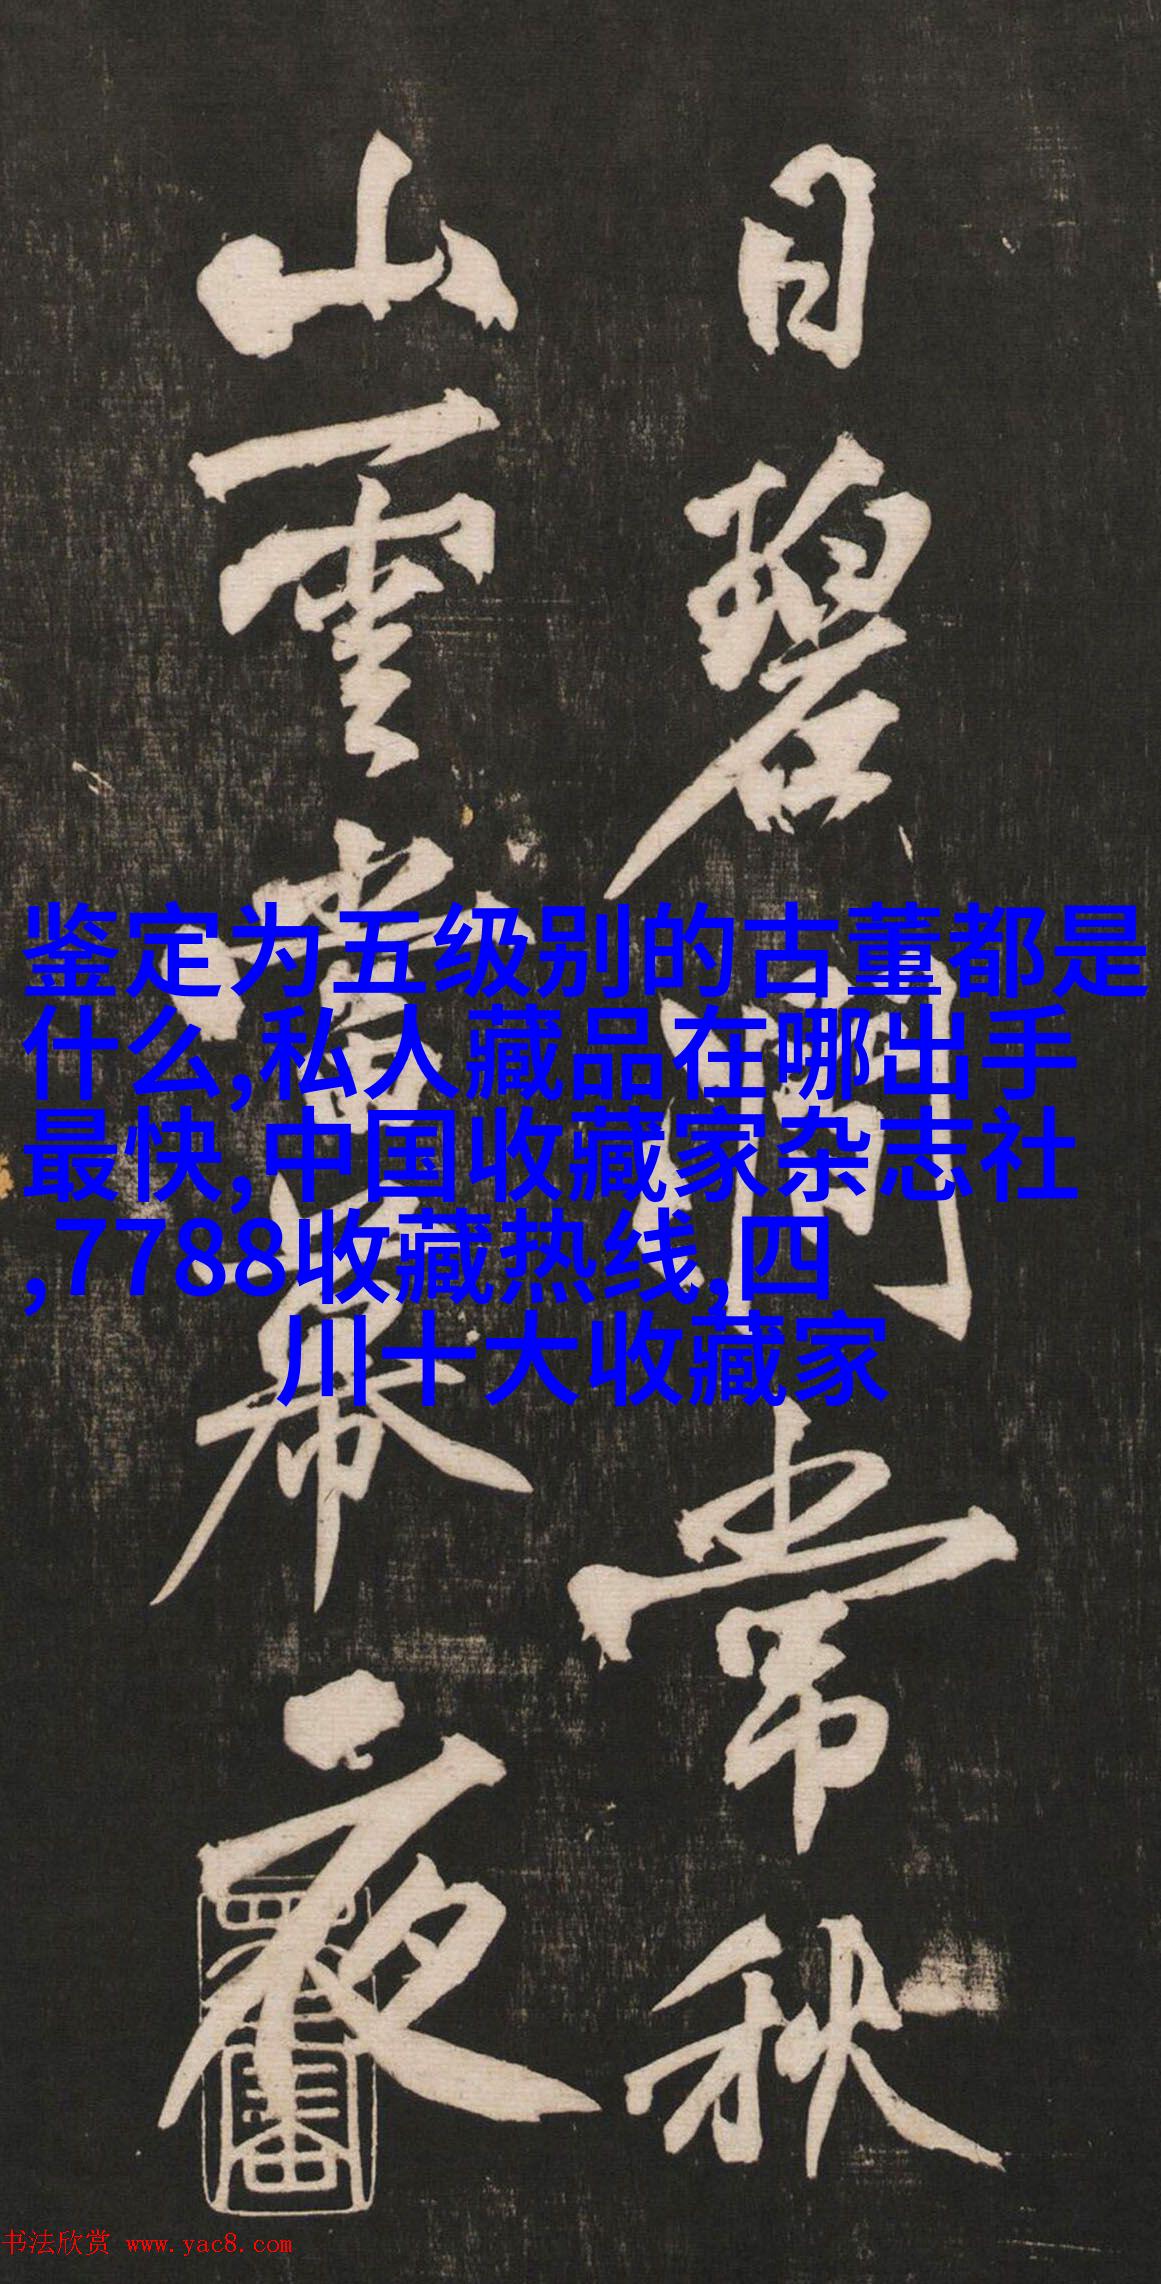 日碧澗常秋
山雲當幕夜
鉴定为五级别的古董都是
什么,私人藏品在哪出手
最快,中国收藏家杂志社
,7788收藏热线,四
川十大收藏家
书法欣赏 www.yac8.com